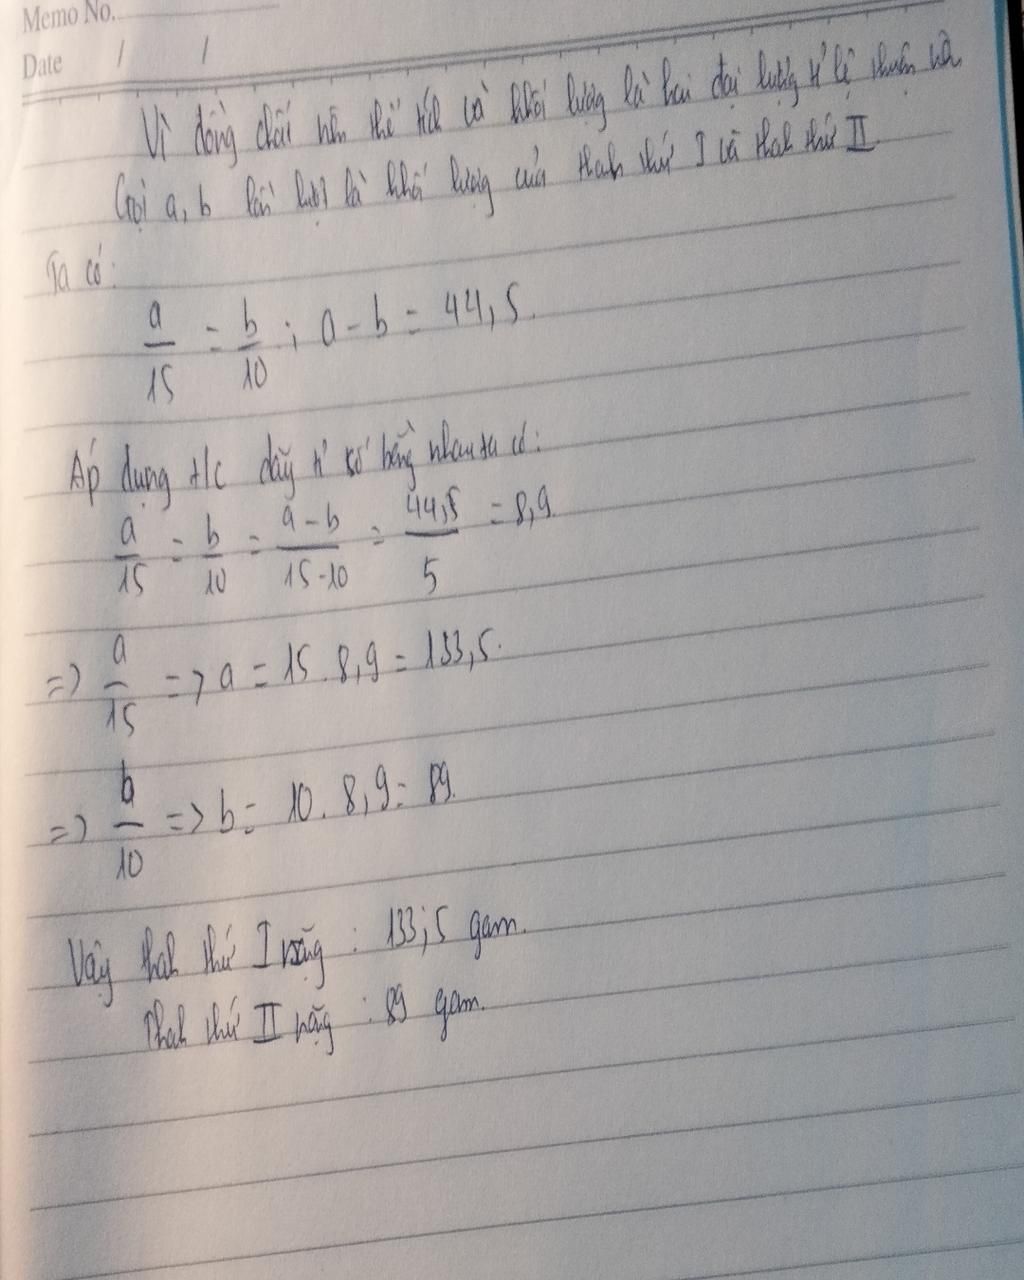 Memo No.
Date / /
Vì đồng chất nên thể tích và khối lượng là hai đại lượng tỉ lệ thuận và
Gọi a, b lần lượt là khối lượng của thah thứ I và thah thứ II.
Ta có:
a/15 = b/10 ; a - b = 44,5.
Áp dụng t/c dãy tỉ số bằng nhau ta có:
a/15 = b/10 = a-b/15-10 = 44,5/5 = 8,9
=> a/15 => a = 15 . 8,9 = 133,5.
=> b/10 => b = 10 . 8,9 = 89.
Vậy thah thứ I nặng : 133,5 gam.
Thah thứ II nặng : 89 gam.